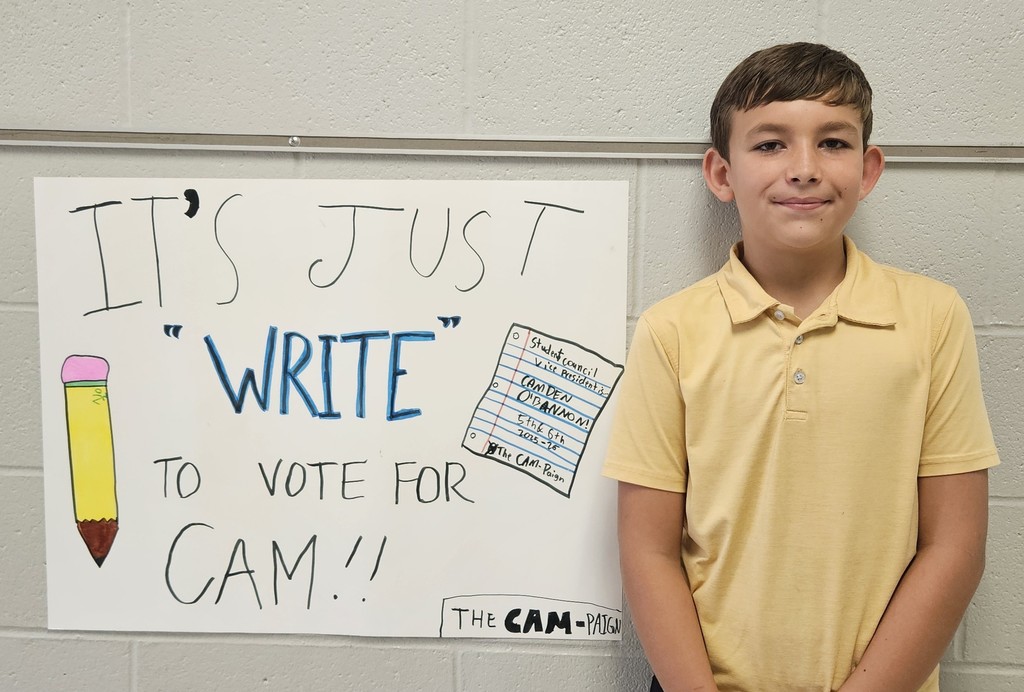 IT'S JUST
"WRITE"
TO VOTE FOR
CAM!!
Student council
vice president is
CAMDEN
O'BANNON!
5th & 6th
2025-26
The CAM-Paign
THE CAM-PAIGN